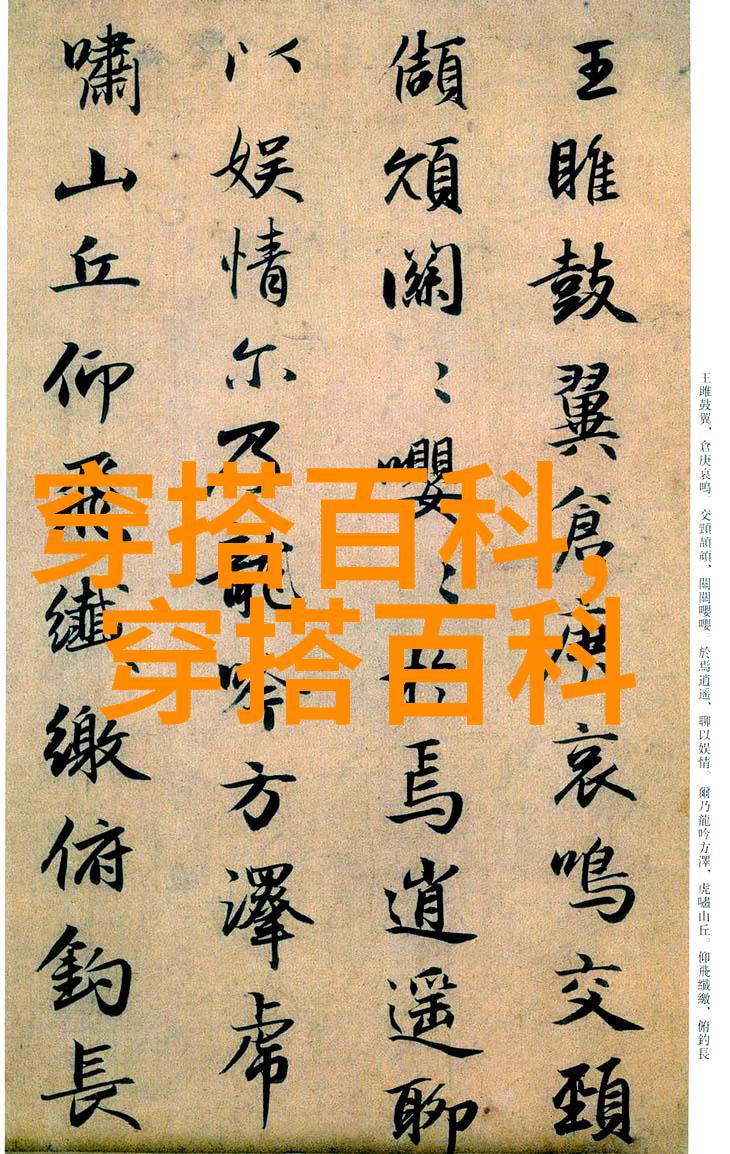 王雎鼓翼倉庚哀鳴交頸
頡頏關〻嚶〻於焉逍遥聊
以娱情尓乃龍吟方澤虎
嘯山丘仰飛纖繳俯釣長
王雎鼓翼、倉庚哀鳴。交頸頡頏、關關嚶嚶。於焉逍遥、聊以娱情。爾乃龍吟方澤、虎嘯山丘。仰飛纖繳、俯釣長
穿搭百科,
穿搭百科